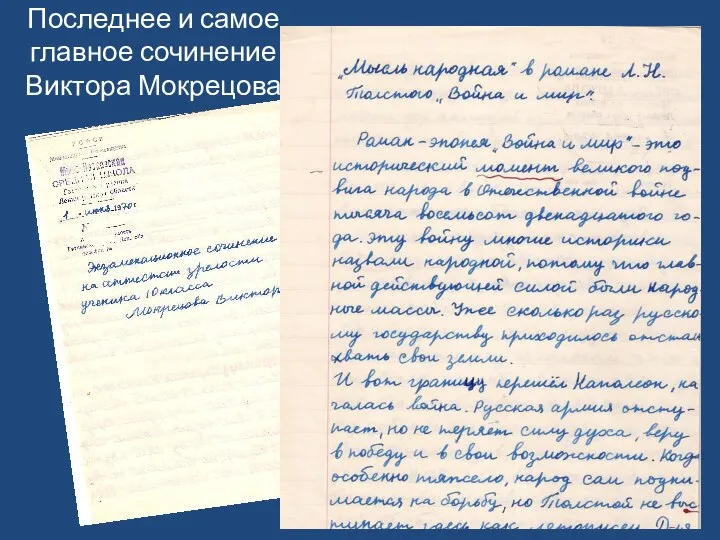 Последнее и самое
главное сочинение
Виктора Мокрецова
РСФСР
СРЕДНЯЯ ШКОЛА
1 - июня 1970 г.
N
Экзаменационное сочинение
на аттестат зрелости
ученика 10 класса
Мокрецова Виктор
„Мысль народная" в романе Л.Н.
Толстого „Война и мир".
Роман-эпопея „Война и мир" - это
исторический момент великого под-
вига народа в Отечественной войне
тысяча восемьсот двенадцатого го-
да. Эту войну многие историки
назвали народной, потому что глав-
ной действующей силой были народ
ные массы. Уже сколько раз русско-
му государству приходилось отста
ивать свои земли.
И вот границу перешёл Наполеон, на
чалась война. Русская армия отсту-
пает, но не теряет силу духа, веру
в победу и в свои возможности. Когд
особенно тяжело, народ сам подни-
мается на борьбу, но Толстой не выс
тупает здесь как летописец. Для